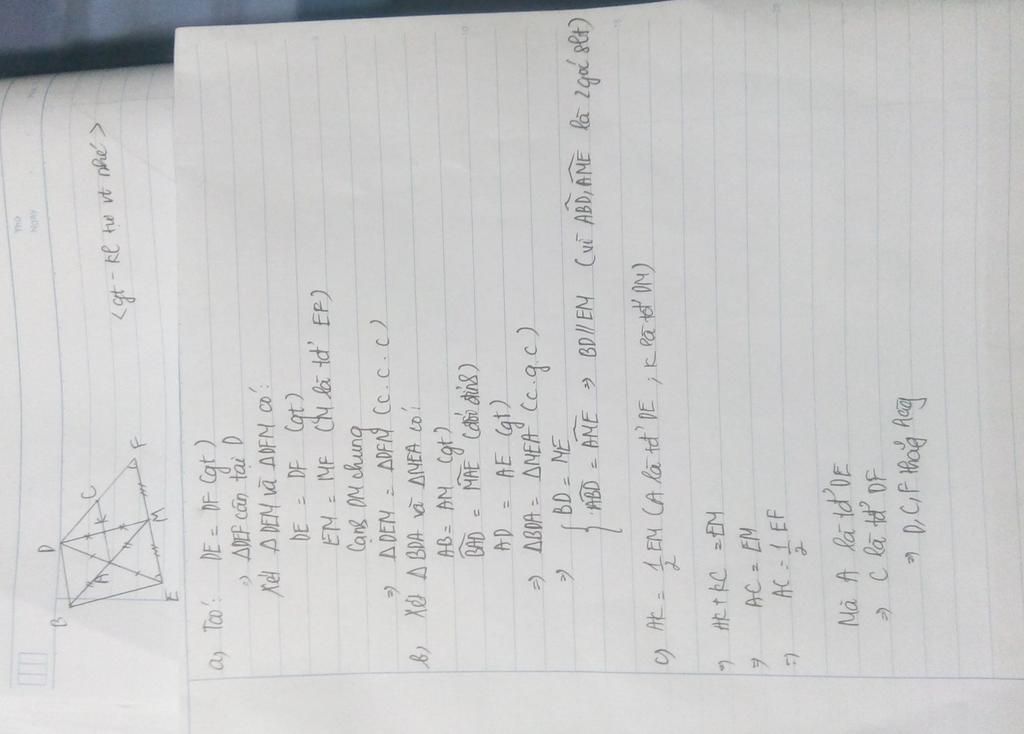 THỨ
NGÀY
<gt - kl tự vt nhé>
B
D
A
K
C
E
M
F
a) Ta có: DE = DF (gt)
⇒ ΔDEF cân tại D
Xét ΔDEM và ΔDFM có:
DE = DF (gt)
EM = MF (M là tđ' EF)
Cạnh DM chung
⇒ ΔDEM = ΔDFM (c.c.c)
b) Xét ΔBDA và ΔMEA có:
AB = AM (gt)
BAD = MAE (đối đỉnh)
AD = AE (gt)
⇒ ΔBDA = ΔMEA (c.g.c)
⇒ { BD = ME
ABD = AME ⇒ BD // EM (vì ABD, AME là 2 góc slt)
c) AK = 1/2 EM (A là tđ' DE, K là tđ' DM)
⇒ AK + KC = EM
⇒ AC = EM
⇒ AC = 1/2 EF
Mà A là tđ' DE
⇒ C là tđ' DF
⇒ D, C, F thẳng hàng